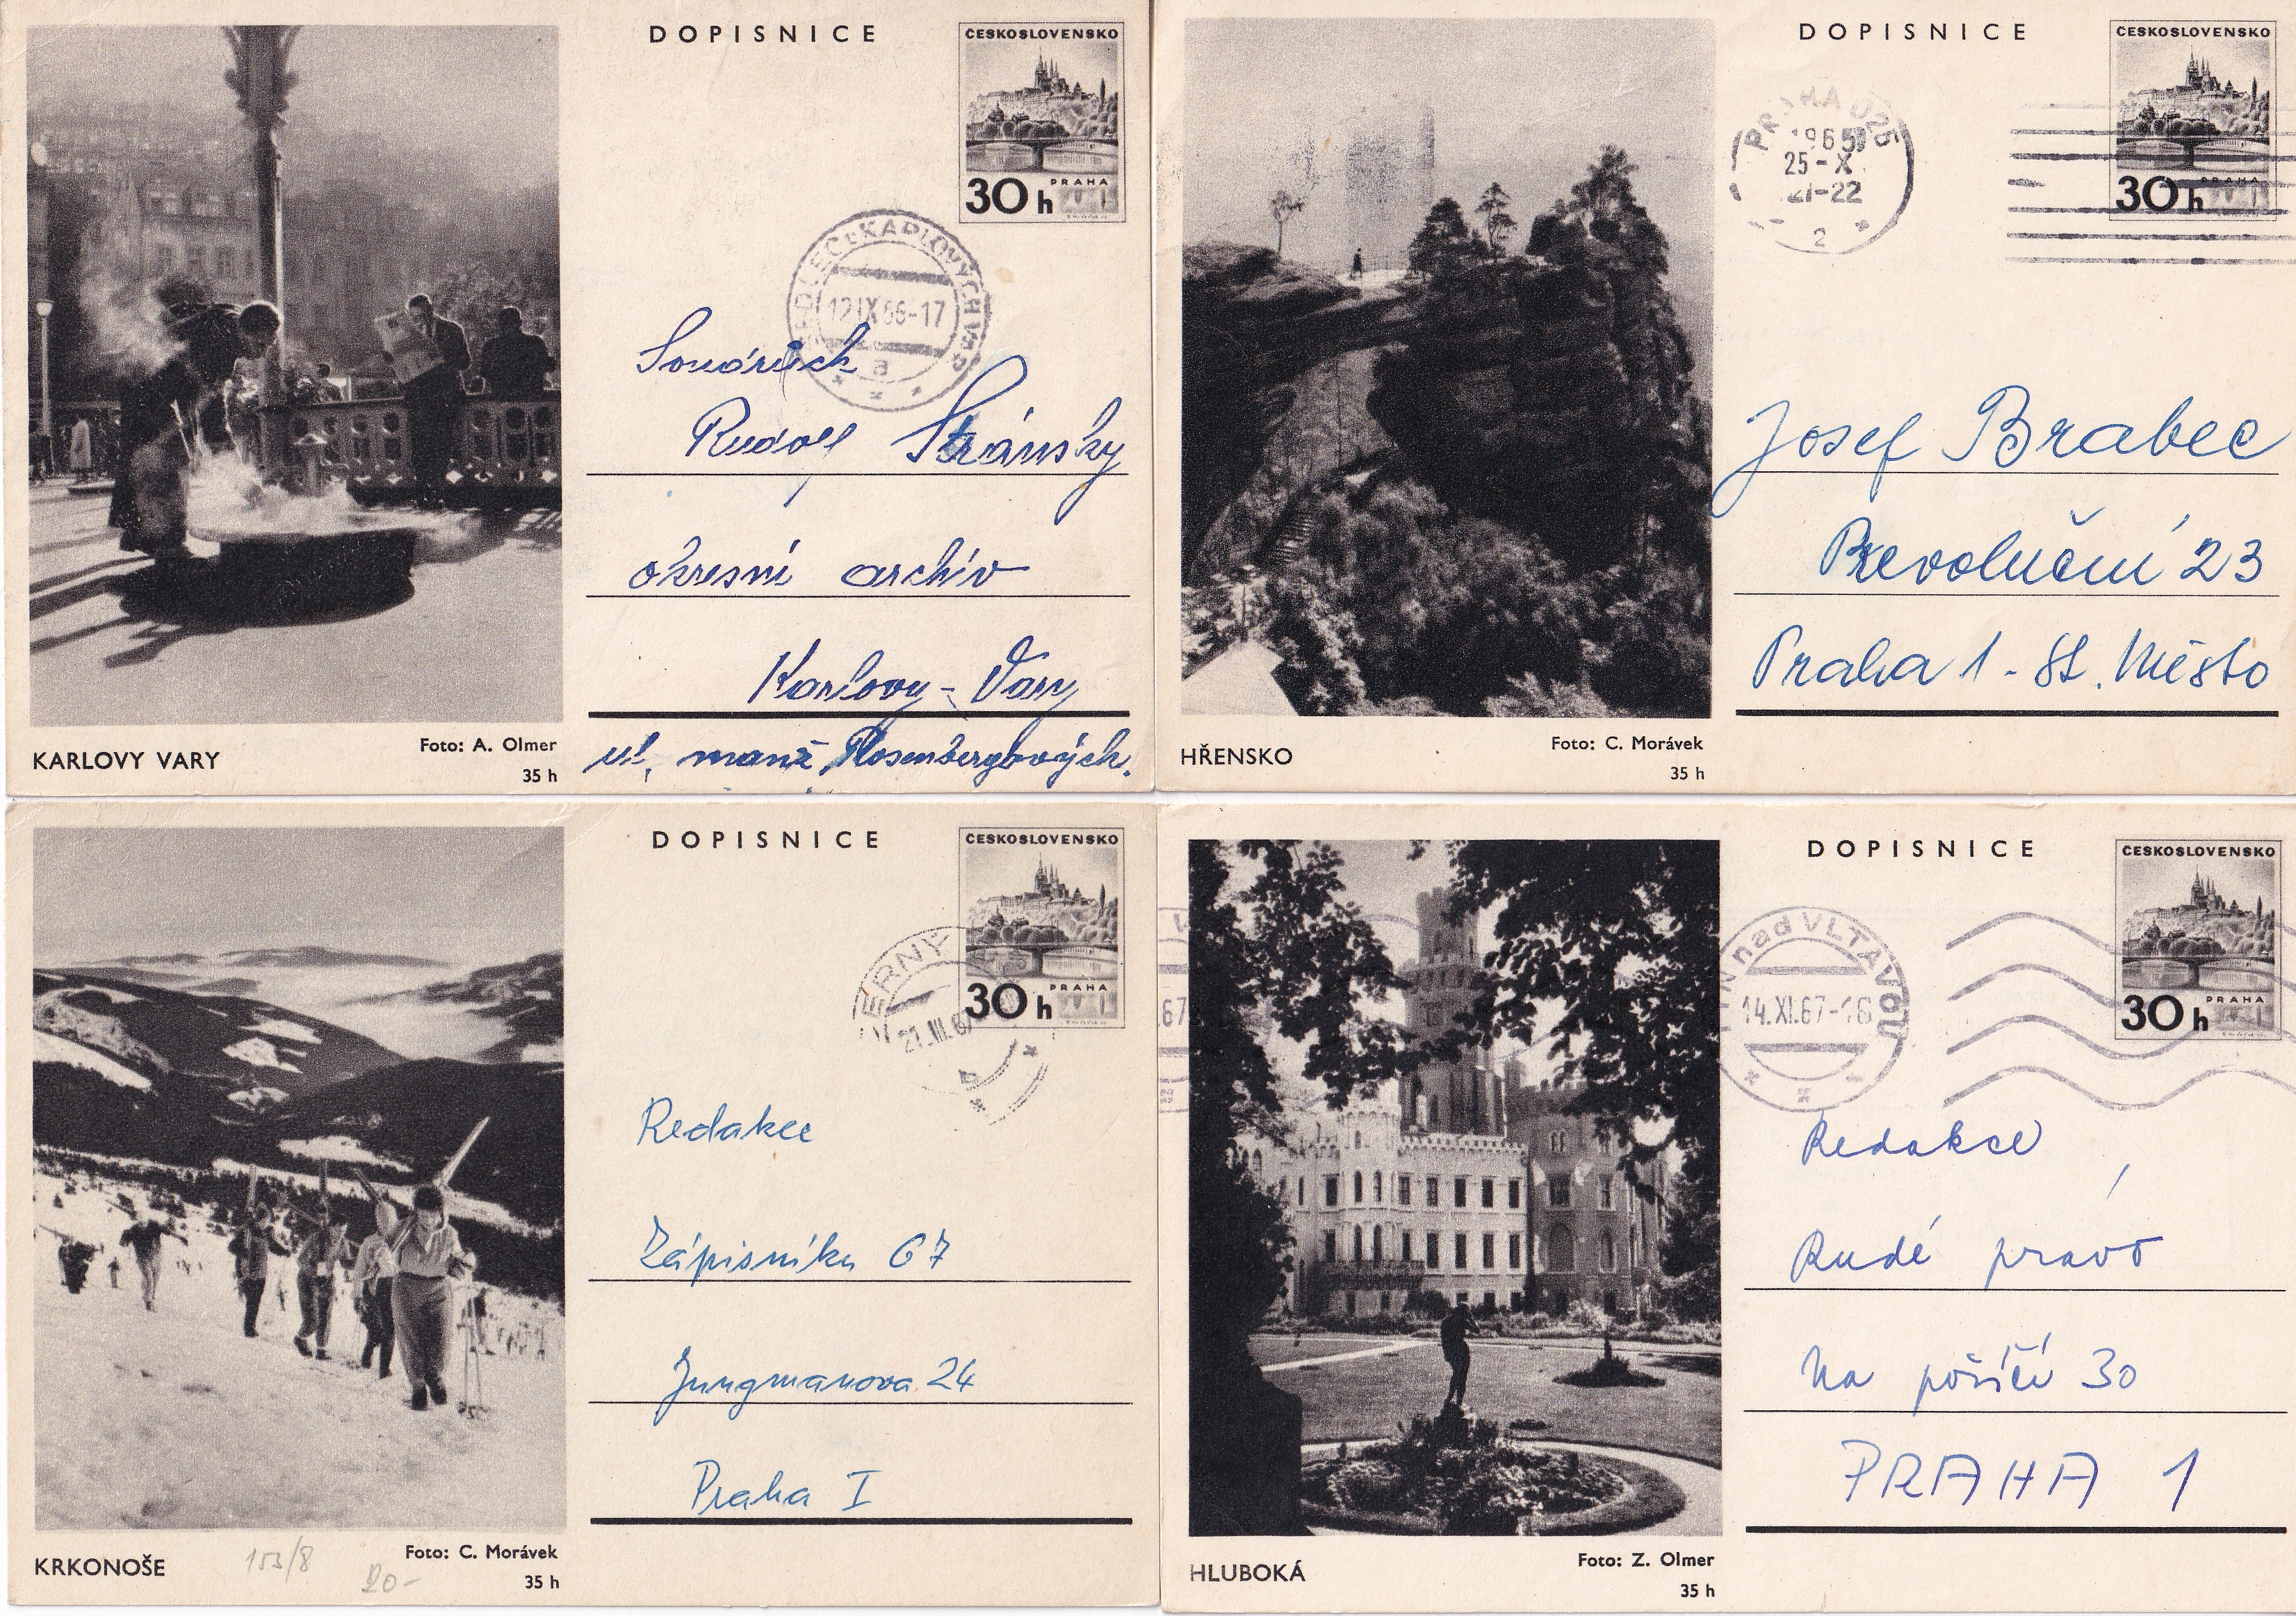 DOPISNICE
ČESKOSLOVENSKO
PRAHA
30 h
SEDLEC u KARLOVÝCH VAR
12.IX.66-17
a
Soudruh
Rudolf Stránský
okresní archív
Karlovy-Vary
ul. manž. Rosenbergbových.
KARLOVY VARY
Foto: A. Olmer
35 h
DOPISNICE
ČESKOSLOVENSKO
PRAHA
30 h
PRAHA 025
1965
25-X
21-22
2
Josef Brabec
Revoluční 23
Praha 1 - St. Město
HŘENSKO
Foto: C. Morávek
35 h
DOPISNICE
ČESKOSLOVENSKO
PRAHA
30 h
ERNÝ
21.III.67
b
Redakce
Zápisníku 67
Jungmanova 24
Praha I
KRKONOŠE
153/8
20-
Foto: C. Morávek
35 h
DOPISNICE
ČESKOSLOVENSKO
PRAHA
30 h
.67
TÝN nad VLTAVOU
14.XI.67-16
Redakce
Rudé právo
Na poříčí 30
PRAHA 1
HLUBOKÁ
Foto: Z. Olmer
35 h